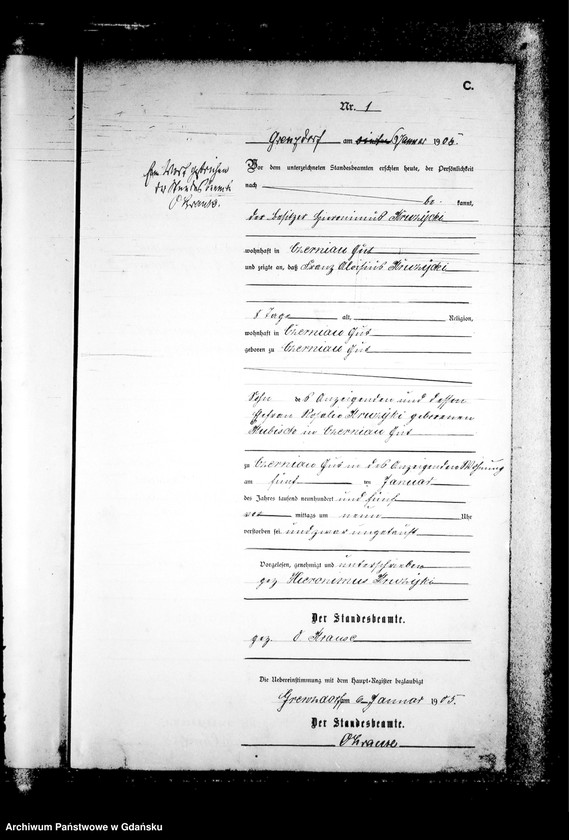 C.
Nr. 1
Grenzdorf am 6 Januar 1905
Ein Wort gestrichen
Der Standesbeamte
O Krause.
Vor dem unterzeichneten Standesbeamten erschien heute, der Persönlichkeit
nach
be kannt,
der Besitzer Hieronimus Kruzycki
wohnhaft in Czerniau Gut
und zeigte an, daß Franz Aloisius Kruzycki
8 Tage alt, Religion,
wohnhaft in Czerniau Gut
geboren zu Czerniau Gut
Sohn des Anzeigenden und dessen
Ehefrau Rosalie geborenen
in Czerniau Gut
zu Czerniau Gut in des Anzeigenden Wohnung
am fünf ten Januar
des Jahres tausend neunhundert und fünf
vor mittags um neun Uhr
verstorben sei und zwar ungetauft
Vorgelesen, genehmigt und unterschrieben
gez. Hieronimus
Der Standesbeamte.
gez. O Krause
Die Uebereinstimmung mit dem Haupt-Register beglaubigt
Grenzdorf am 6 Januar 1905.
Der Standesbeamte.
O Krause
Archiwum Państwowe w Gdańsku